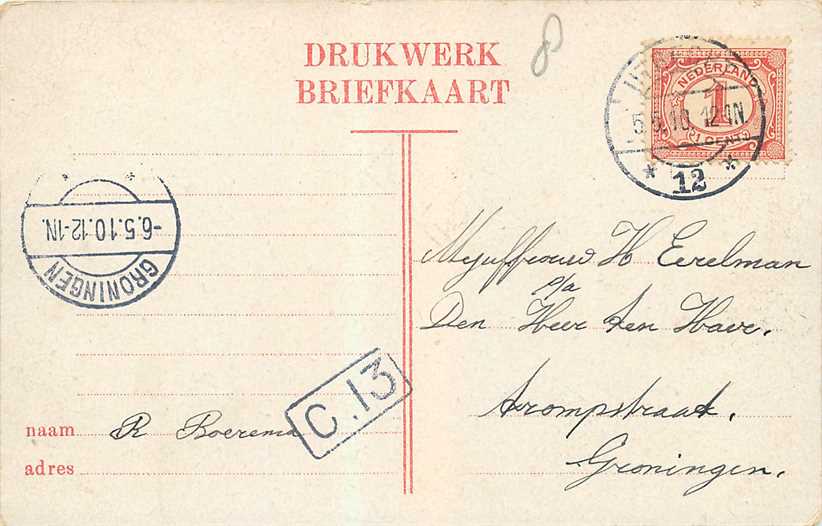 DRUKWERK
BRIEFKAART
8
NEDERLAND
1
CENT
5.5.10 12-1N
12
-6.5.10.12-1N.
GRONINGEN
Mejuffrouw H Eerelman
p/a
Den Heer ten Have.
Trompstraat.
Groningen.
C.13
naam R Boerema
adres